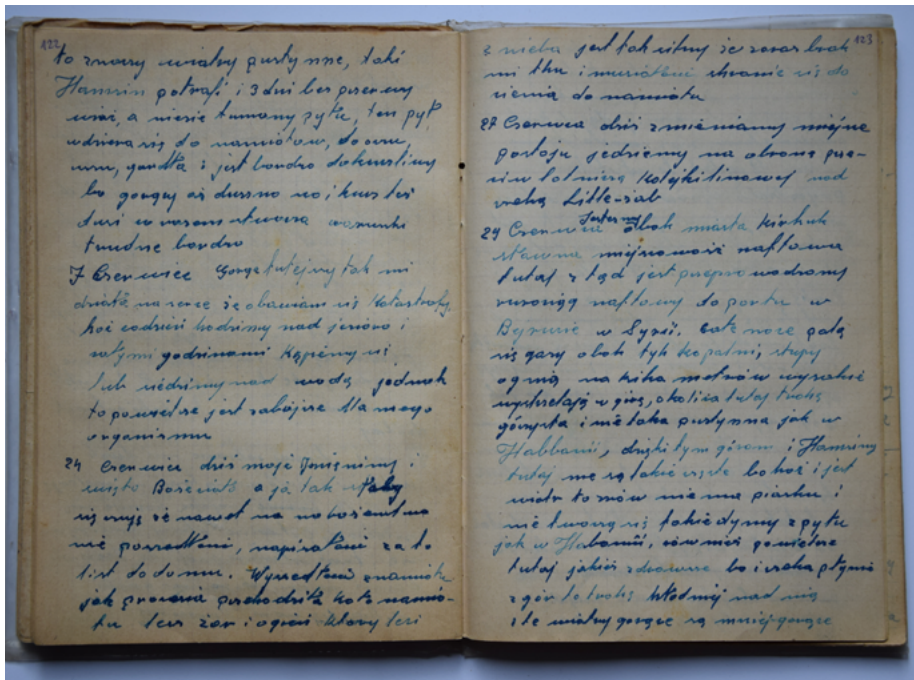 122
to znowy wiatry pustynne, taki
Hamsin potrafi i 3 dni bez przerwy
wiać, a niesie tumany pyłu, ten pył
wdziera się do namiotów, do oczu,
uszu, gardła i jest bardzo dokuczliwy
bo gorący aż duszno no i kurz też
dusi w nosom stwarza warunki
trudne bardzo
7 Czerwiec Gorąc tutejszy tak mi
działa na serce że obawiam się katastrofy
hoć codzień hodzimy nad jezioro i
całymi godzinami kąpiemy się
lub siedzimy nad wodą jednak
to powietrze jest zabójcze dla mego
organizmu
24 Czerwiec dziś moje Imieniny i
święto Boże Ciało a ja tak słaby
się czuję że nawet na nabożeństwo
nie poszedłem, napisałem za to
list do domu. Wyszedłem z namiotu
jak procesia przehodziła koło namio-
tu lecz żar i ogień który leci
123
z nieba jest tak silny że zaraz brak
mi thu i musiałem shronić się do
cienia do namiotu
27 Czerwca dziś zmieniamy miejsce
postoju jedziemy na obronę prze-
ciw lotniczą kolejki linowej nad
rzeką Little-zab
29 Czerwca Jesteśmy obok miasta Kirkuk
sławna miejscowość naftowa
tutaj z tąd jest przeprowadzony
rurociąg naftowy do portu w
Bejrucie w Syrii. Całe noce palą
się gazy obok tyh kopalni, słupy
ognia na kilka metrów wysokie
wystrzelają w górę, okolica tutaj trohę
górzysta i nie taka pustynna jak w
Habbanii, dzięki tym górom i Hamsiny
tutaj nie są takie częste bo hoć i jest
wiatr to znów nie ma piasku i
nie tworzą się takie dymy z pyłu
jak w Habanii, również powietrze
tutaj jakieś zdrowsze bo i rzeka płynie
z gór to trohę hłodniej nad nią
i te wiatry gorące są mniej gorące